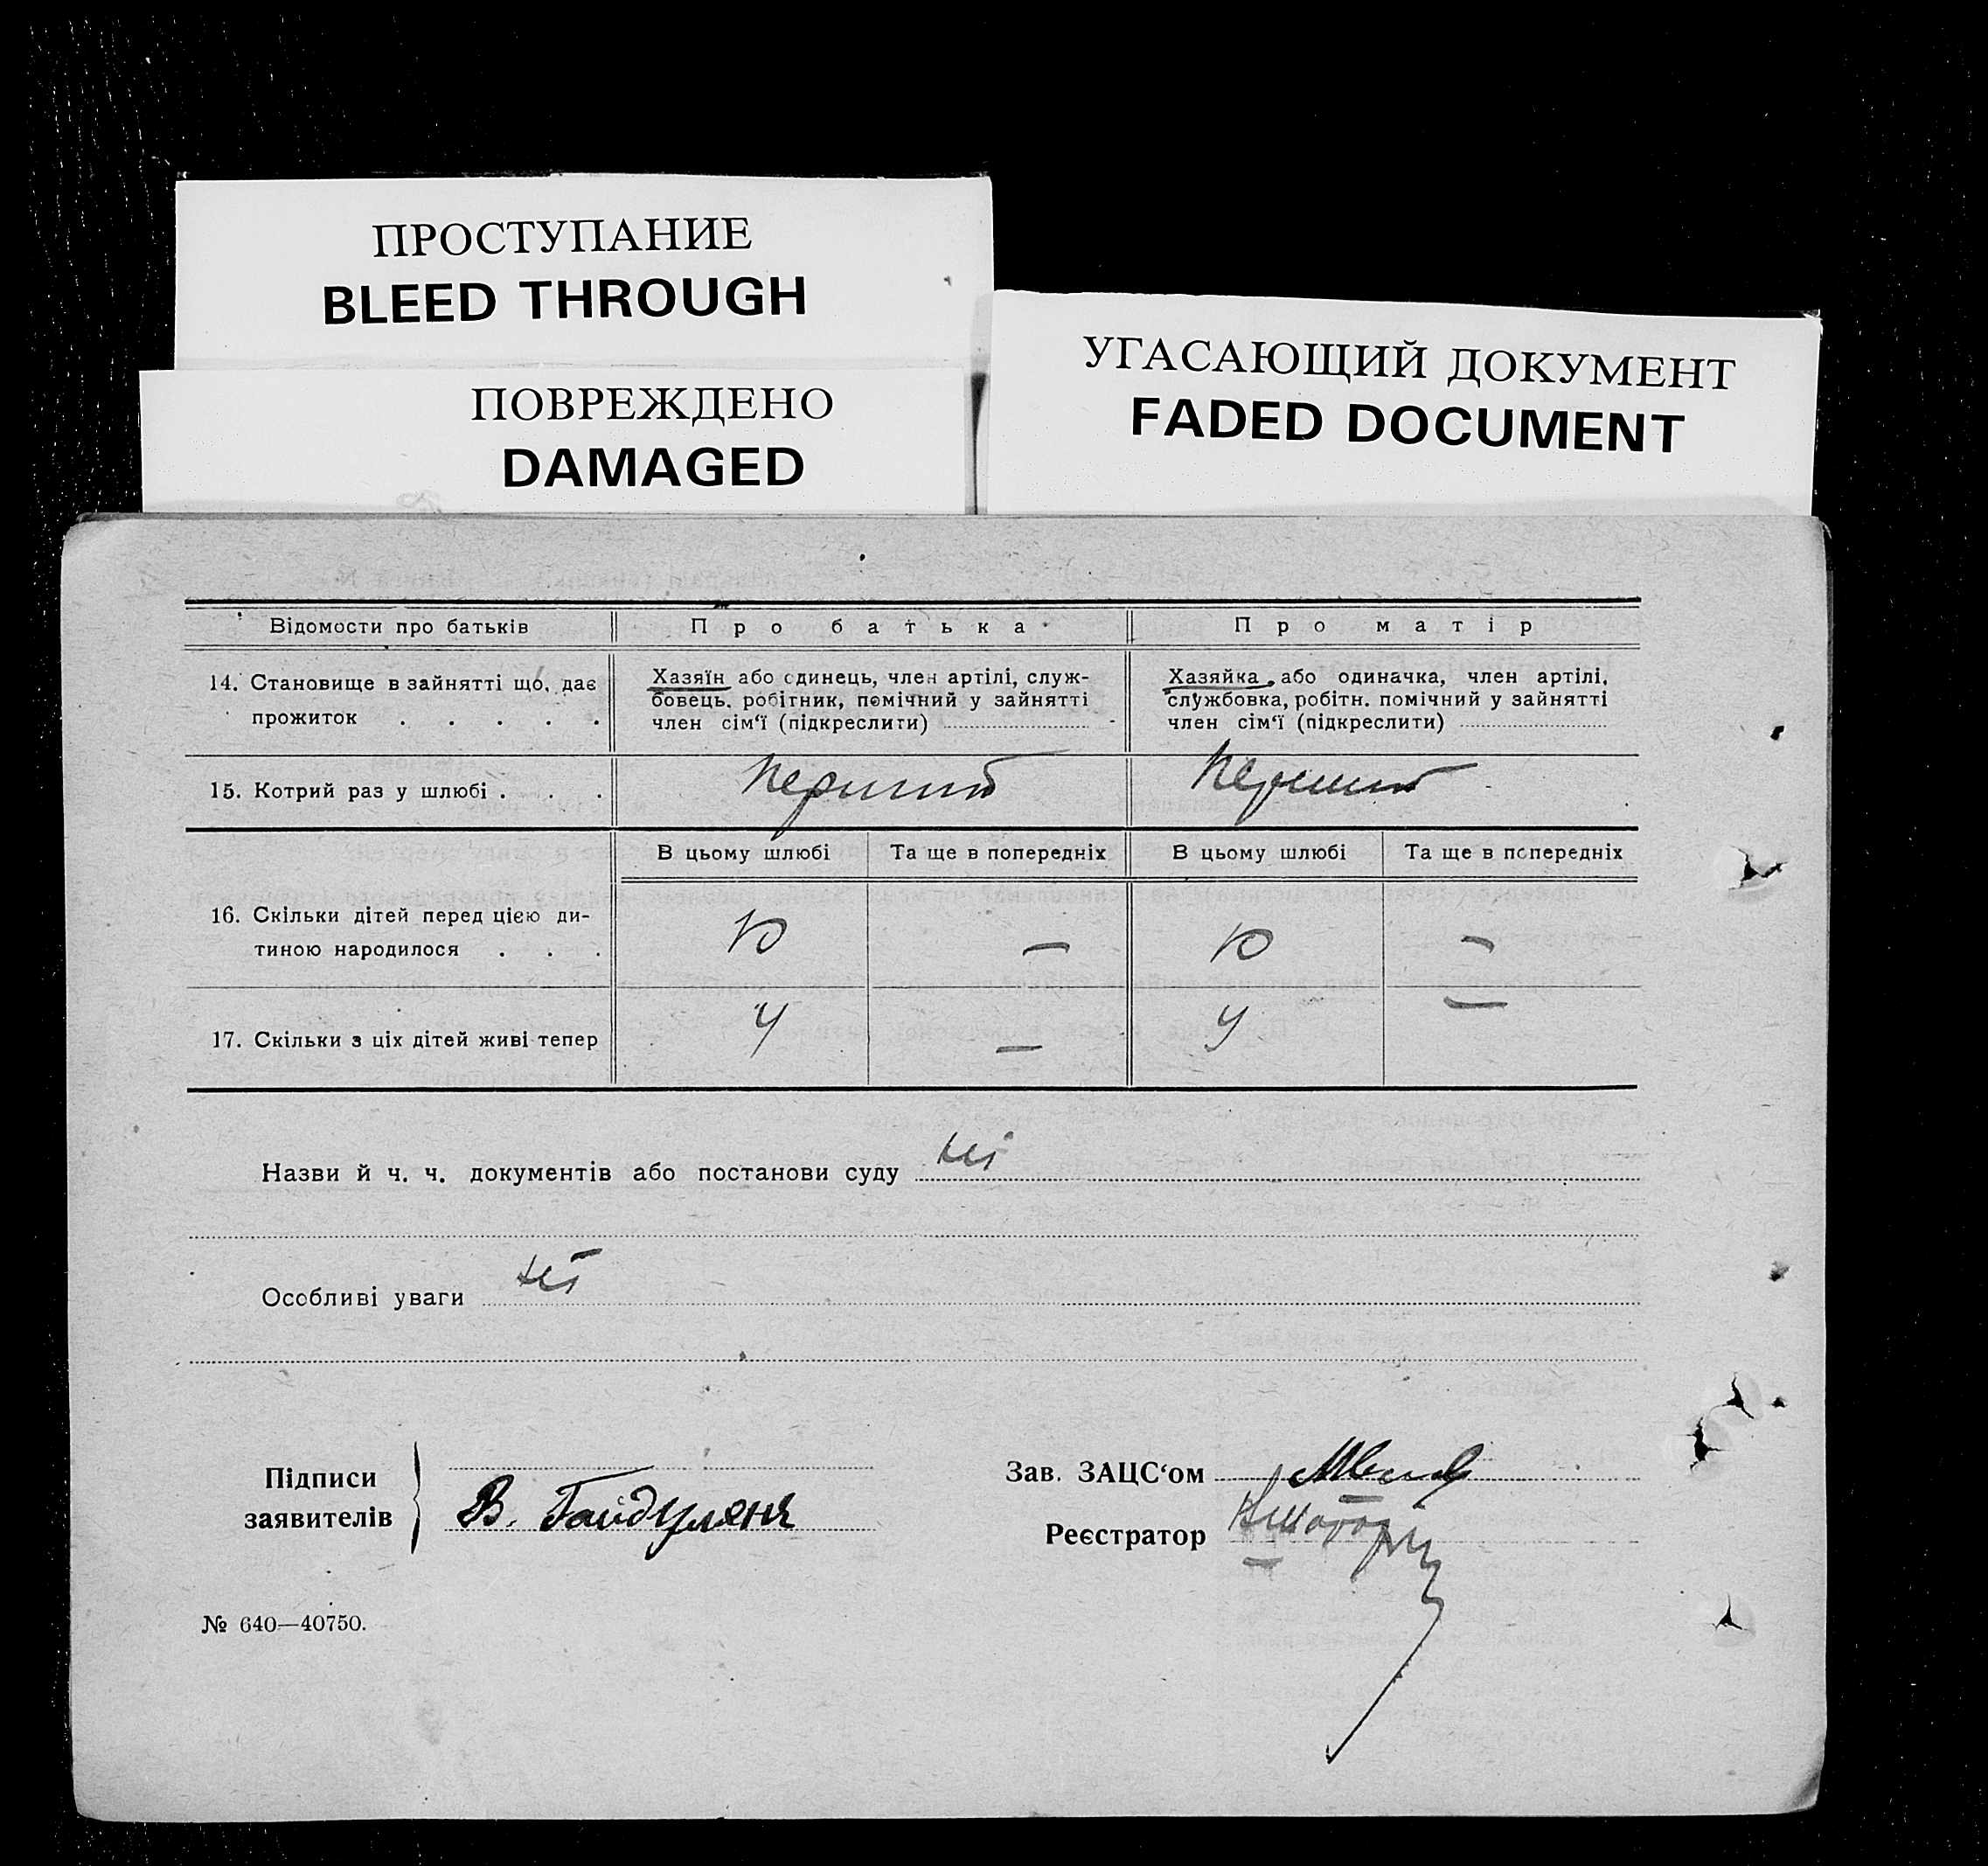 ПРОСТУПАНИЕ
BLEED THROUGH
ПОВРЕЖДЕНО
DAMAGED
УГАСАЮЩИЙ ДОКУМЕНТ
FADED DOCUMENT
Відомости про батьків Про батька Про матір
14. Становище в зайнятті що, дає
прожиток . . . . .
Хазяїн або єдинець, член артілі, служ-
бовець, робітник, помічний у зайнятті
член сім'ї (підкреслити)
Хазяйка, або одиначка, член артілі,
службовка, робітн. помічний у зайнятті
член сім'ї (підкреслити)
15. Котрий раз у шлюбі . . . Перший Перший
В цьому шлюбі Та ще в попередніх В цьому шлюбі Та ще в попередніх
16. Скільки дітей перед цією ди-
тиною народилося . . . 10 — 10 —
17. Скільки з ціх дітей живі тепер 4 — 4 —
Назви й ч. ч. документів або постанови суду
Особливі уваги
Підписи
заявителів
В.
Зав. ЗАЦС'ом
Реєстратор
№ 640—40750.